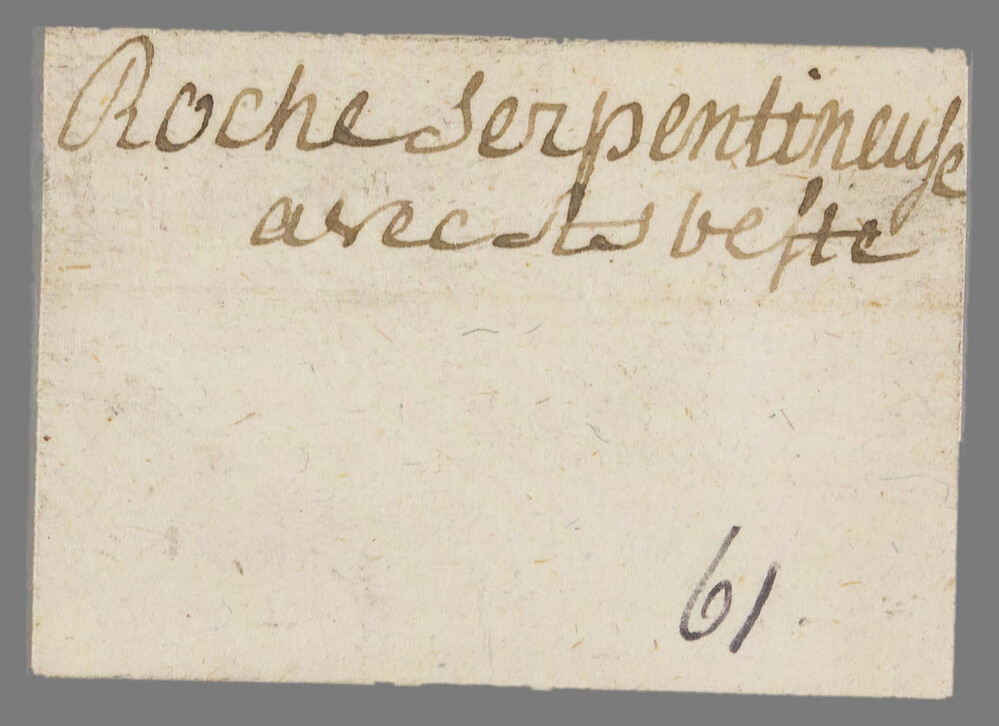 Roche serpentineuse
avec das beste
61